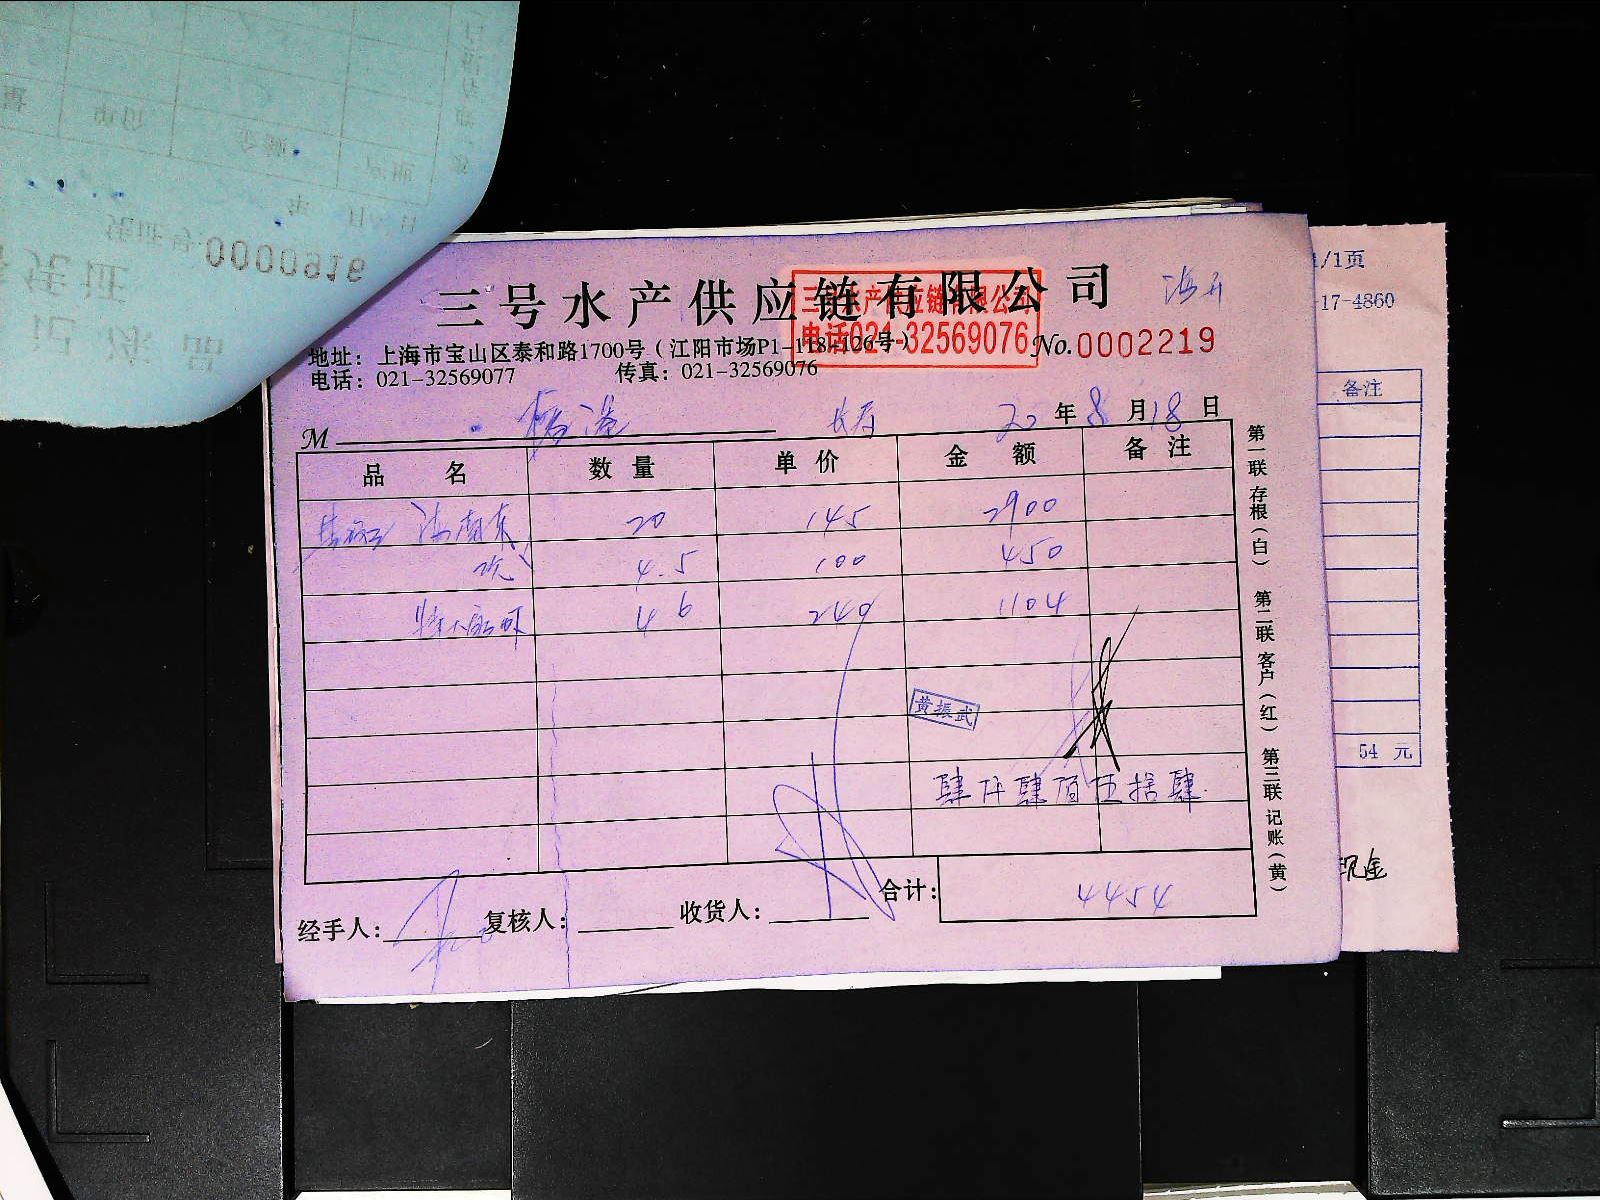 0000916
三号水产供应链有限公司
三号水产供应链有限公司
电话021-32569076
地址：上海市宝山区泰和路1700号（江阳市场P1-118-126号）
No.0002219
电话：021-32569077 传真：021-32569076
M 杨港 20年8月18日
品名 数量 单价 金额 备注
20 145 2900
4.5 100 450
46 240 1104
黄振武
肆仟肆佰伍拾肆
合计：4454
经手人： 复核人： 收货人：
第一联存根（白） 第二联客户（红） 第三联记账（黄）
1/1页
-17-4860
备注
54 元
现金